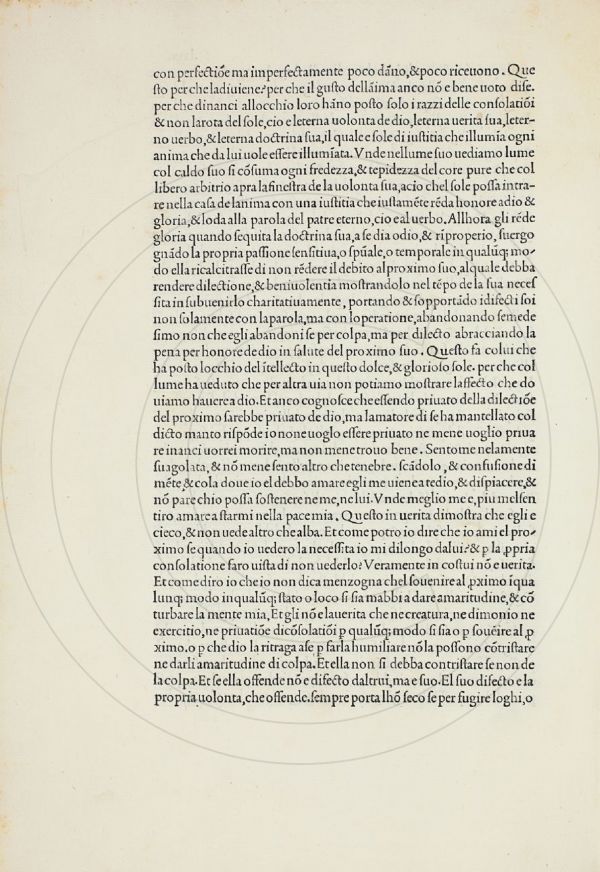 con perfectiõe ma imperfectamente poco dãno,&poco riceuono. Que
sto per che ladiuiene? per che il gusto dellãima anco nõ e bene uoto dise.
per che dinanci allocchio loro hãno posto solo i razzi delle consolatiõi
& non larota del sole, cio e leterna uolonta de dio, leterna uerita sua, leter-
no uerbo, & leterna doctrina sua, il quale e sole di iustitia che illumĩa ogni
anima che da lui uole essere illumĩata. Vnde nellume suo uediamo lume
col caldo suo si cõsuma ogni fredezza, & tepidezza del core pure che col
libero arbitrio apra lafinestra de la uolonta sua, acio chel sole possa intra-
re nella casa de lanima con una iustitia che iustamẽte rẽda honore adio &
gloria, & loda alla parola del patre eterno, cio e al uerbo. Allhora gli rẽde
gloria quando sequita la doctrina sua, a se dia odio, & riproperio, suergo
gnãdo la propria passione sensitiua, o spũale, o temporale in qualũq; mo-
do ella ricalcitrasse di non rẽdere il debito al proximo suo, alquale debba
rendere dilectione, & beniuolentia mostrandolo nel tẽpo de la sua neces
sita in subuenirlo charitatiuamente, portando & sopportãdo idifecti soi
non solamente con la parola, ma con lo peratione, abandonando semede
simo non che egli abandoni se per colpa, ma per dilecto abracciando la
pena per honore de dio in salute del proximo suo. Questo fa colui che
ha posto locchio del ĩtellecto in questo dolce, & glorioso sole. per che col
lume ha ueduto che per altra uia non potiamo mostrare laffecto che do
uiamo hauere a dio. Et anco cognosce che essendo priuato della dilectiõe
del proximo sarebbe priuato de dio, ma lamatore di se ha mantellato col
dicto manto rispõde io non e uoglo essere priuato ne mene uoglio priua
re inanci uorrei morire, ma non mene trouo bene. Sentome nelamente
su agolata, & nõ mene sento altro che tenebre. scãdolo, & confusione di
mẽte, & cola doue io el debbo amare egli me uiene a tedio, & dispiacere, &
nõ pare chio possa sostenere ne me, ne lui. Vnde meglio me e, piu melsen
tiro amare a starmi nella pace mia. Questo in uerita dimostra che egli e
cieco, & non uede altro che alba. Et come potro io dire che io ami el pro-
ximo se quando io uedero la necessita io mi dilongo dalui? & ꝑ la ꝓpria
consolatione faro uista di non uederlo? Veramente in costui nõ e uerita.
Et come diro io che io non dica menzogna chel souenire al ꝓximo ĩ qua
lunq; modo in qualũq; stato o loco si sia mabbi a dare amaritudine, & cõ
turbare la mente mia. Et gli nõ e la uerita che ne creatura, ne dimonio ne
exercitio, ne priuatiõe dicõsolatiõi ꝑ qualũq; modo si sia o ꝑ souẽire al ꝓ
ximo. o ꝑ che dio la ritraga a se ꝑ farla humiliare nõ la possono cõtristare
ne darli amaritudine di colpa. Et ella non si debba contristare se non de
la colpa. Et se ella offende nõ e difecto daltrui, ma e suo. El suo difecto e la
propria uolonta, che offende. sempre porta lhõ seco se per fugire loghi, o